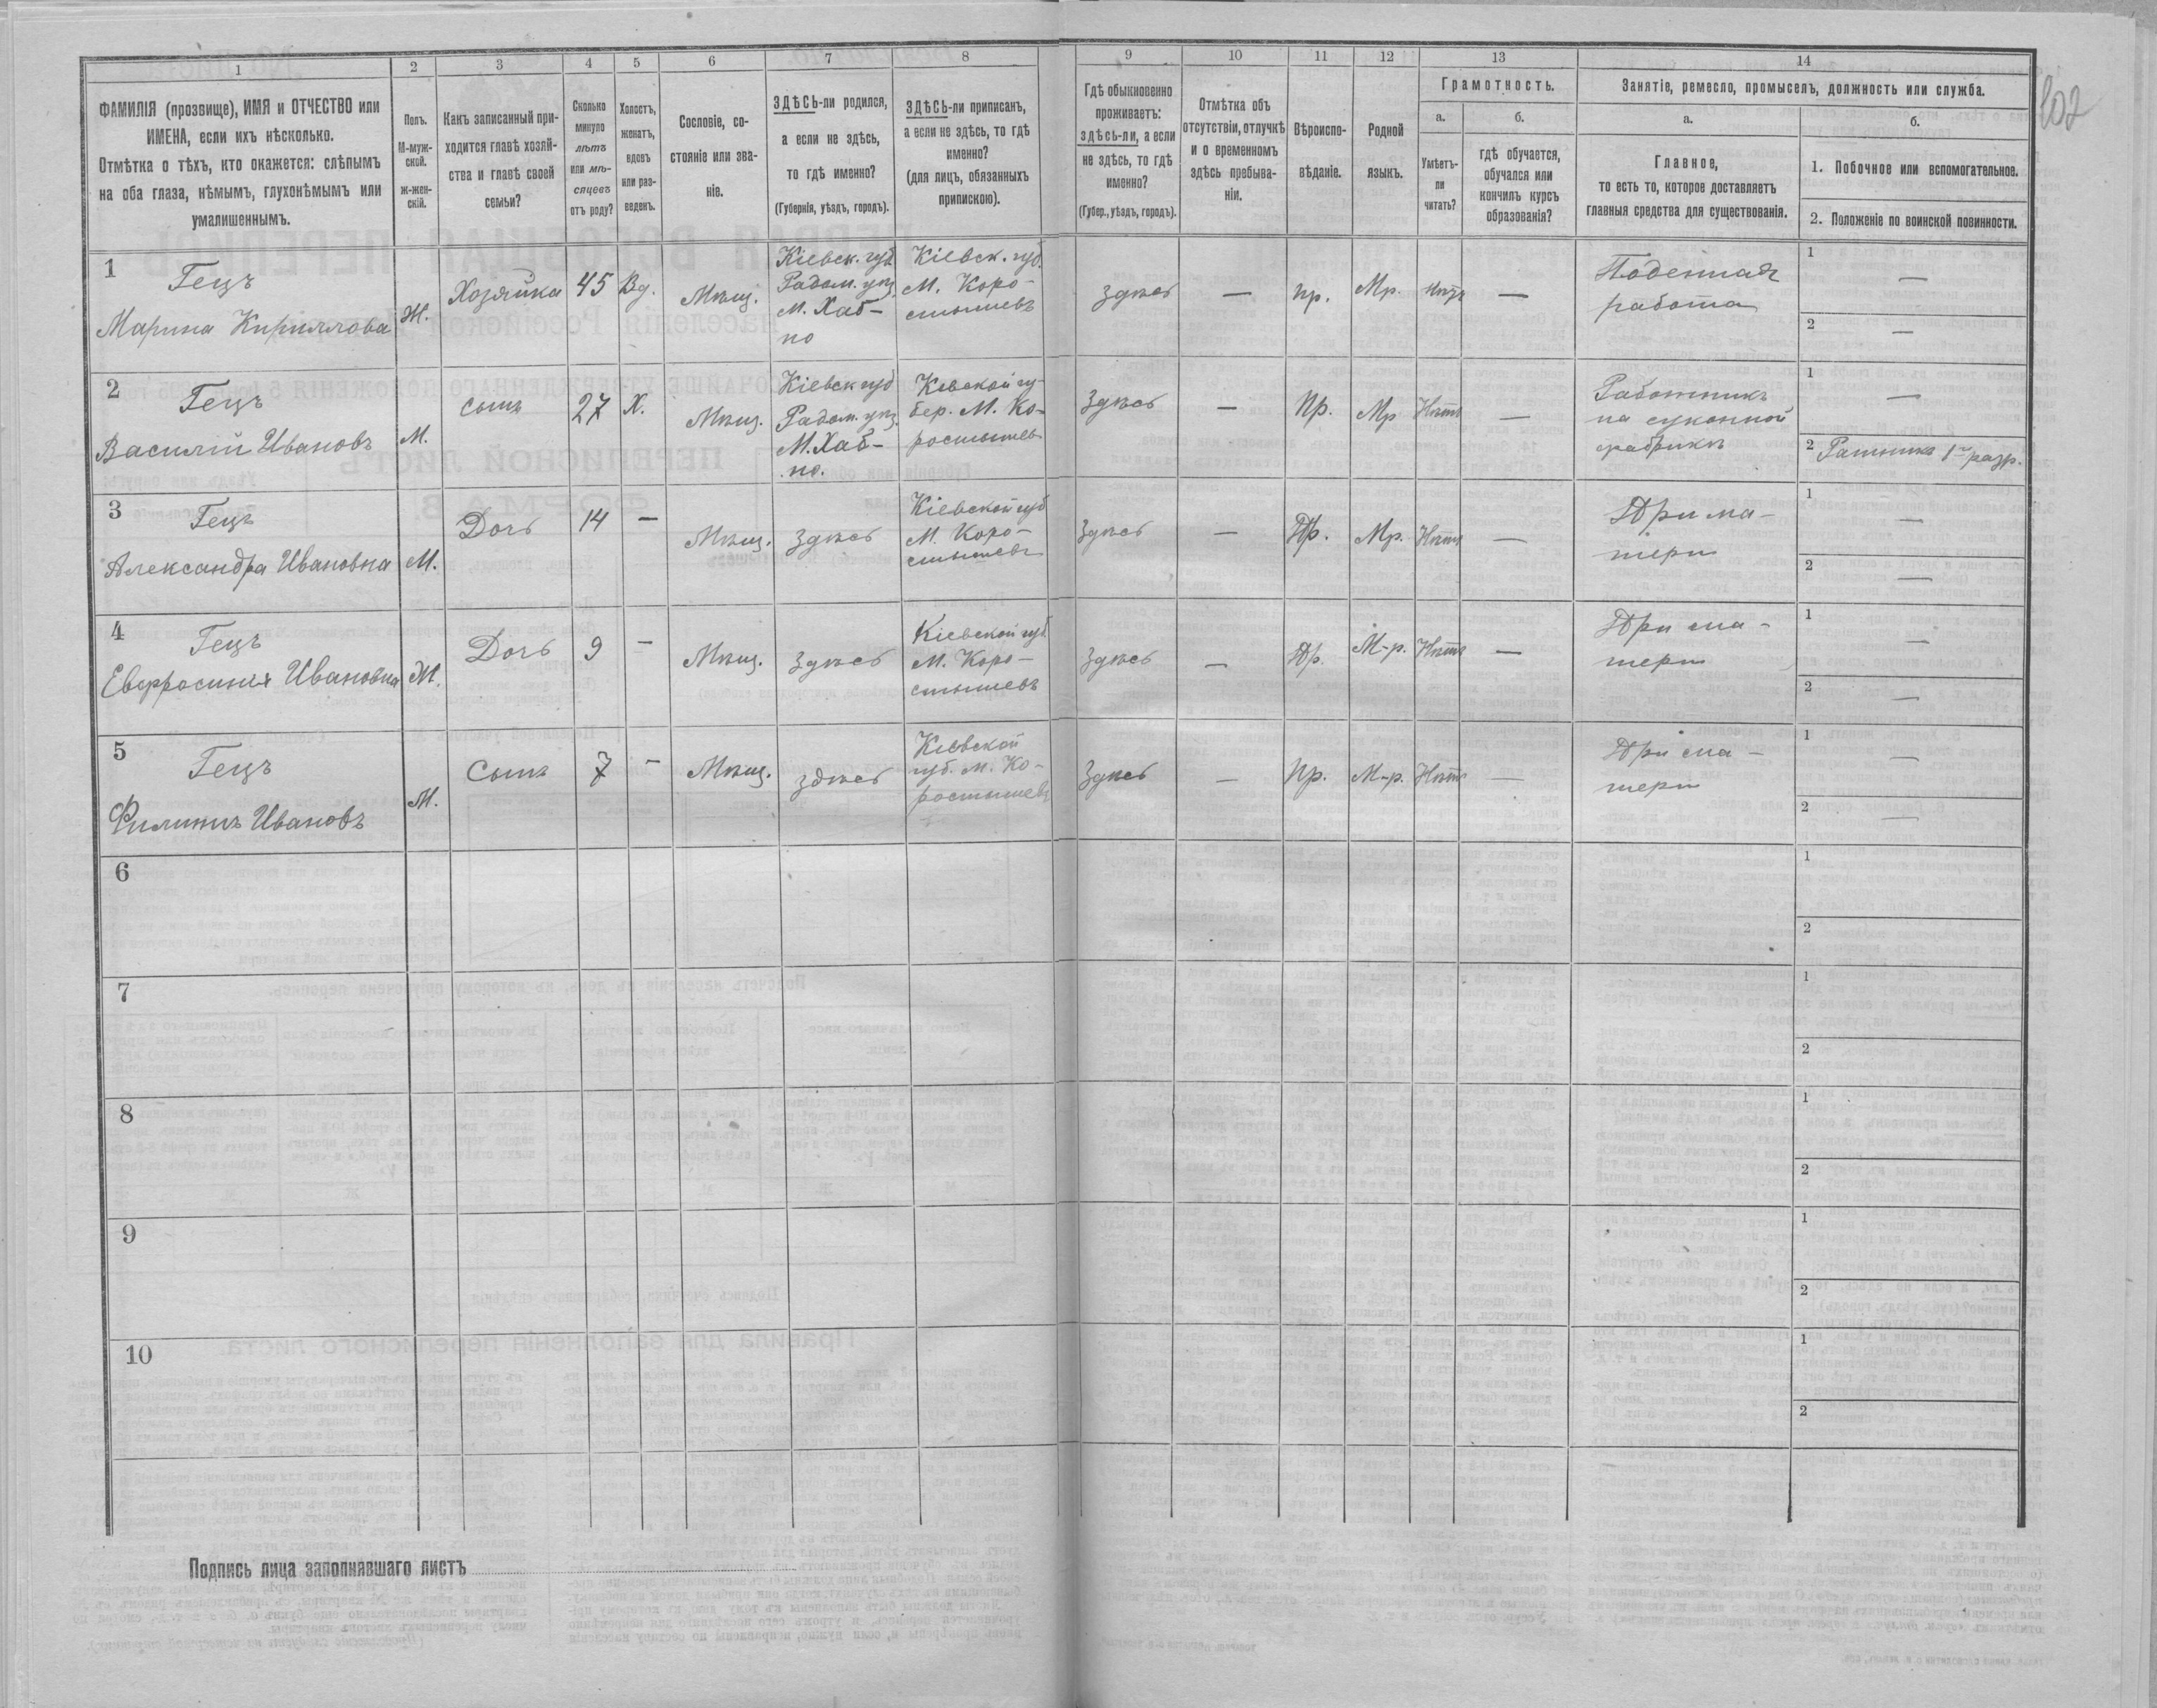 102
1 2 3 4 5 6 7 8 9 10 11 12 13 14
ФАМИЛІЯ (прозвище), ИМЯ и ОТЧЕСТВО или
ИМЕНА, если ихъ нѣсколько.
Отмѣтка о тѣхъ, кто окажется: слѣпымъ
на оба глаза, нѣмымъ, глухонѣмымъ или
умалишеннымъ.
Полъ.
М-муж-
ской.
ж-жен-
скій.
Какъ записанный при-
ходится главѣ хозяй-
ства и главѣ своей
семьи?
Сколько
минуло
лѣтъ
или мѣ-
сяцевъ
отъ роду?
Холостъ,
женатъ,
вдовъ
или раз-
веденъ.
Сословіе, со-
стояніе или зва-
ніе.
ЗДѢСЬ-ли родился,
а если не здѣсь,
то гдѣ именно?
(Губернія, уѣздъ, городъ).
ЗДѢСЬ-ли приписанъ,
а если не здѣсь, то гдѣ
именно?
(для лицъ, обязанныхъ
припискою).
Гдѣ обыкновенно
проживаетъ:
здѣсь-ли, а если
не здѣсь, то гдѣ
именно?
(Губер., уѣздъ, городъ).
Отмѣтка объ
отсутствіи, отлучкѣ
и о временномъ
здѣсь пребыва-
ніи.
Вѣроиспо-
вѣданіе.
Родной
языкъ.
Грамотность.
а.
Умѣетъ-
ли
читать?
б.
гдѣ обучается,
обучался или
кончилъ курсъ
образованія?
Занятіе, ремесло, промыселъ, должность или служба.
а.
Главное,
то есть то, которое доставляетъ
главныя средства для существованія.
б.
1. Побочное или вспомогательное.
2. Положеніе по воинской повинности.
1
Гецъ
Марина Кириллова
Ж.
Хозяйка
45
Вд.
Мѣщ.
Кіевск. губ.
Радом. уѣз.
М. Хаб-
но
Кіевск. губ.
М. Коро-
стышевъ
здѣсь
—
пр.
Мр.
Нѣтъ
—
Поденная
работа
1 —
2 —
2
Гецъ
Василій Ивановъ
М.
сынъ
27
Х.
Мѣщ.
Кіевск губ
Радом. уѣз.
М. Хаб-
но.
Кевской гу-
бер. М. Ко-
ростышев
Здѣсь
—
Пр.
Мр
Нѣтъ
—
Работникъ
на суконной
фабрикѣ
1 —
2 Ратникъ 1го разр.
3
Гецъ
Александра Ивановна
М.
Дочь
14
—
Мѣщ.
здѣсь
Кіевской губ
М. Коро-
стышевъ
Здѣсь
—
Пр.
Мр.
Нѣтъ
—
При ма-
тери
1 —
2 —
4
Гецъ
Евфросинія Ивановна
Ж.
Дочь
9
—
Мѣщ.
здѣсь
Кіевской губ.
М. Коро-
стышевъ
Здѣсь
—
Пр.
М-р.
Нѣтъ
—
При ма-
тери
1 —
2 —
5
Гецъ
Филипъ Ивановъ
М.
Сынъ
7
—
Мѣщ.
здѣсь
Кіевской
губ. м. Ко-
ростышевъ
Здѣсь
—
Пр.
М-р.
Нѣтъ
—
При ма-
тери
1 —
2 —
6
1
2
7
1
2
8
1
2
9
1
2
10
1
2
Подпись лица заполнявшаго листъ